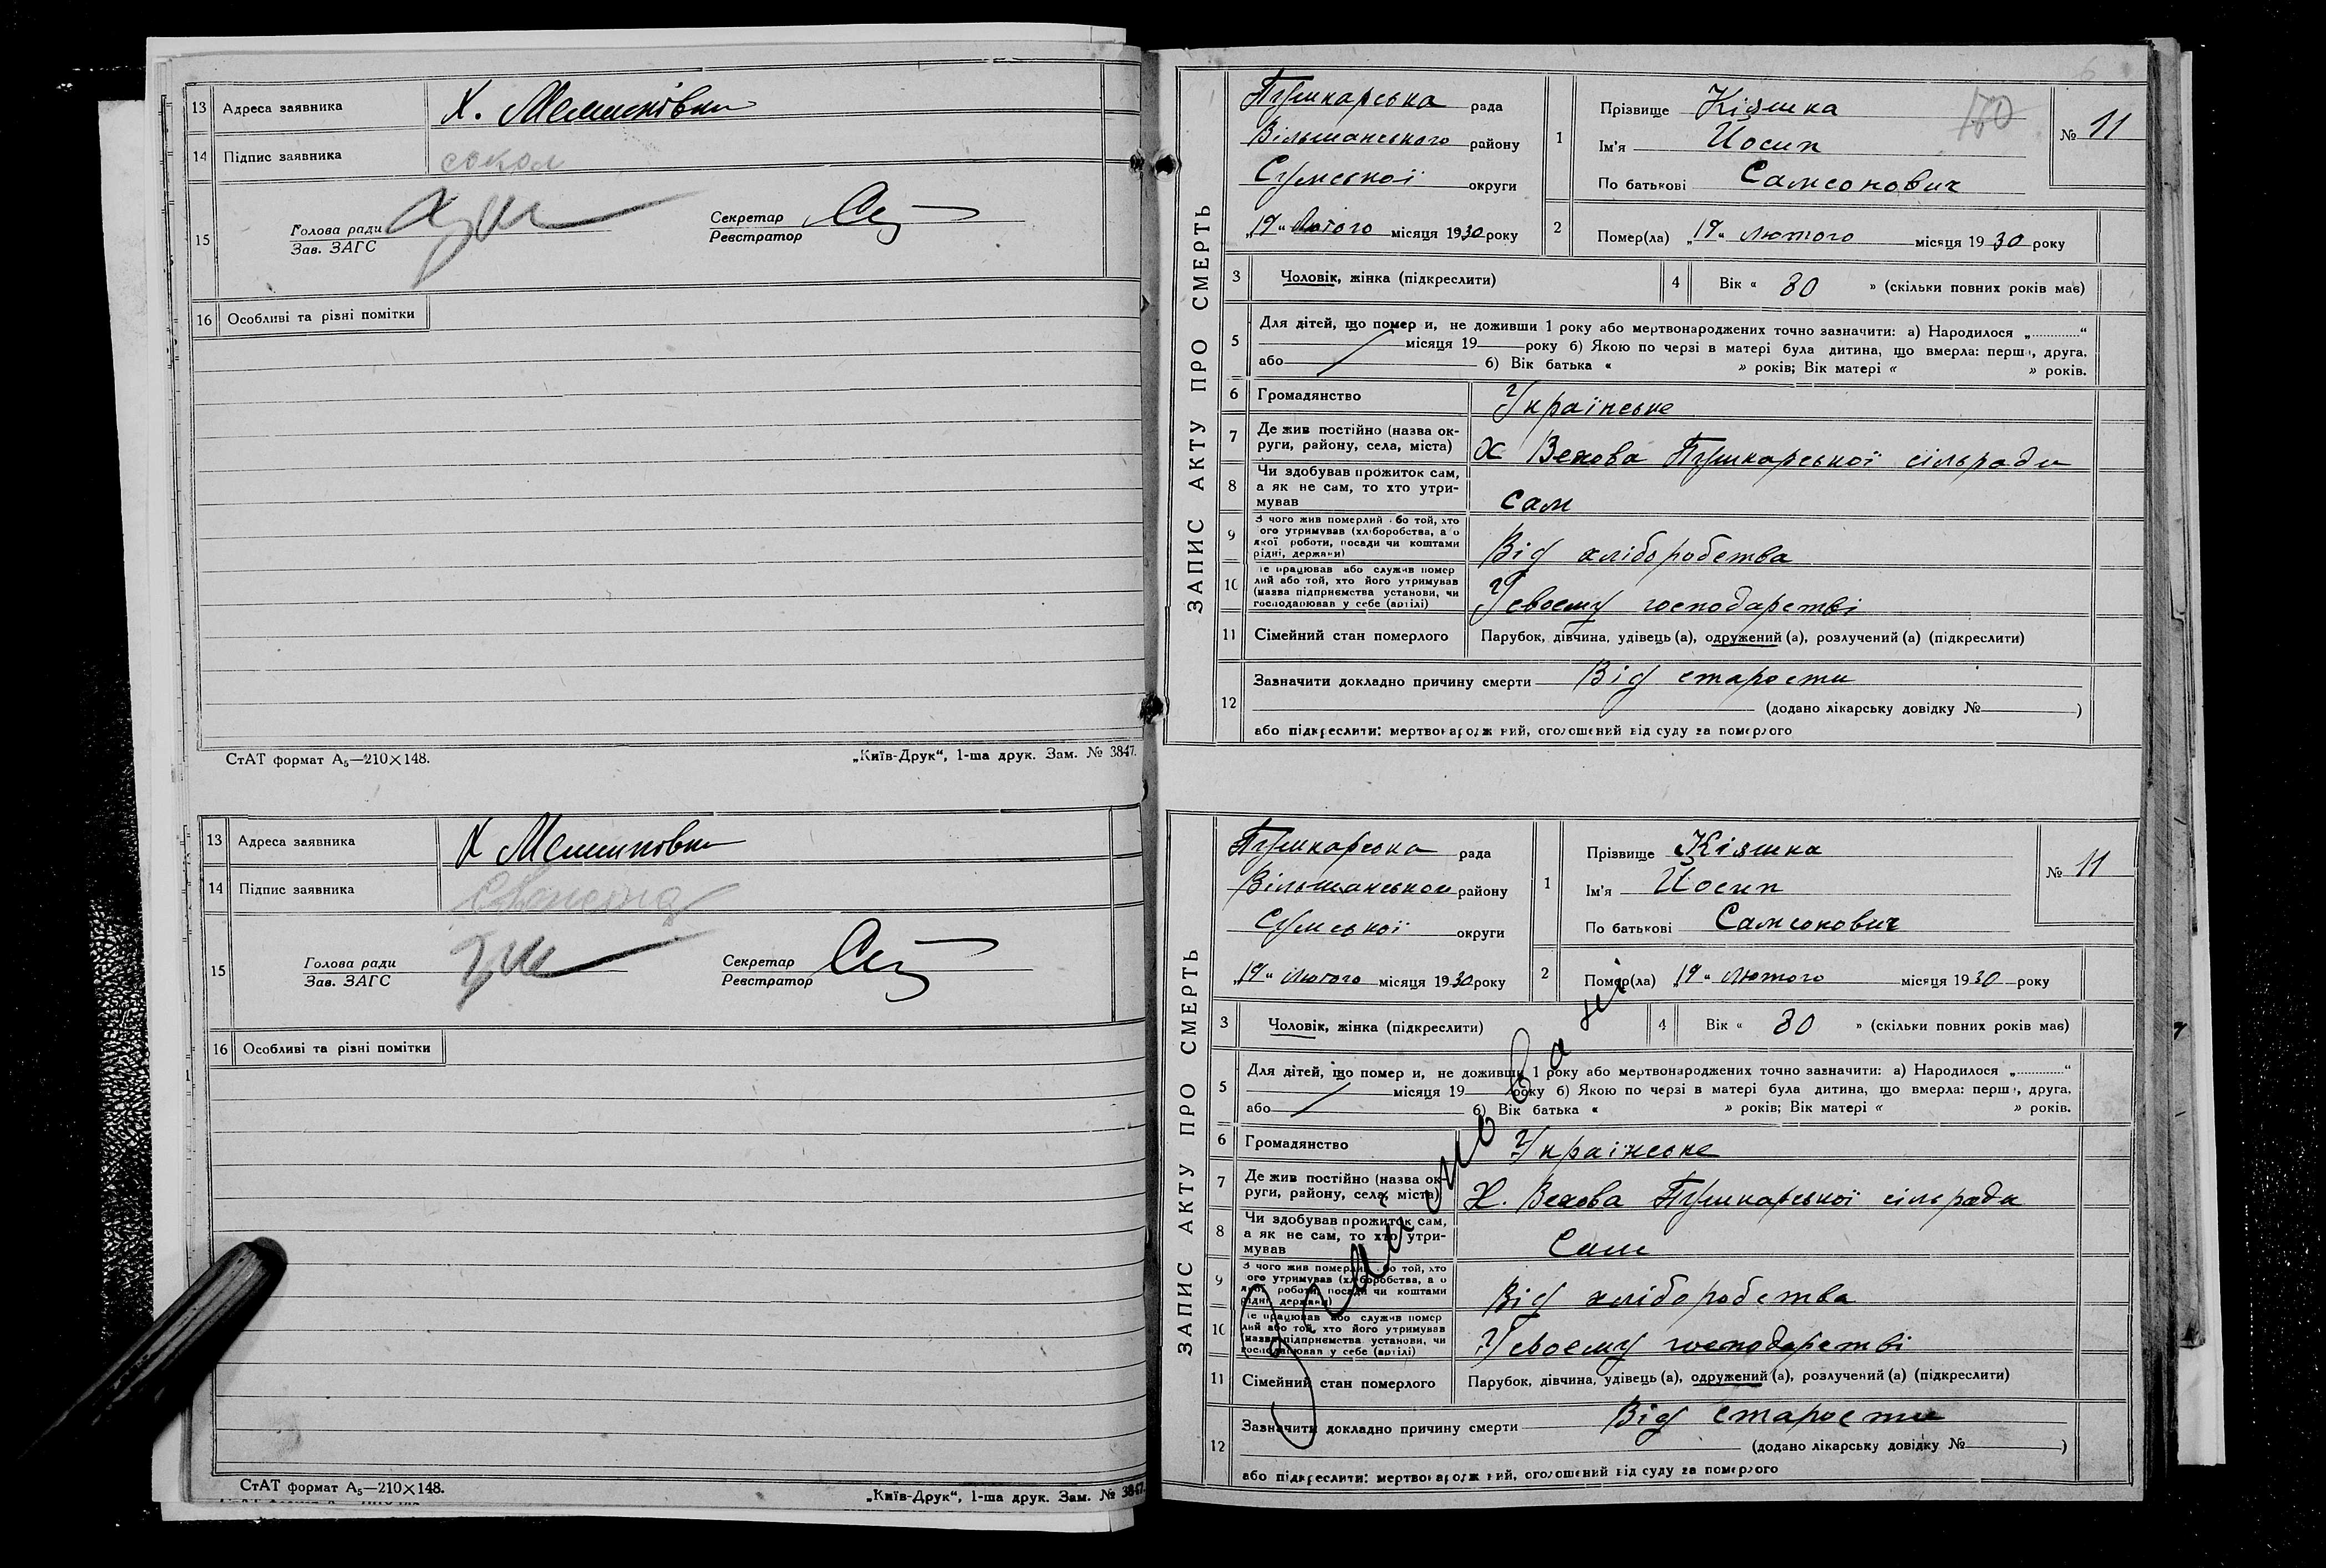 13 Адреса заявника Х. Мельниківка
14 Підпис заявника сокол
15 Голова ради
Зав. ЗАГС
Секретар
Реєстратор
16 Особливі та різні помітки
СтАТ формат А₅—210×148.
„Київ-Друк“, 1-ша друк. Зам. № 3847.
13 Адреса заявника Х Мельниківка
14 Підпис заявника
15 Голова ради
Зав. ЗАГС
Секретар
Реєстратор
16 Особливі та різні помітки
СтАТ формат А₅—210×148.
„Київ-Друк“, 1-ша друк. Зам. № 3847.
ЗАПИС АКТУ ПРО СМЕРТЬ
Пушкарська рада
Вільшанського району
Сумської округи
„19“ Лютого місяця 1930 року
1 Прізвище Кіяшка
Ім'я Йосип
По батькові Самсонович
150
№ 11
2 Помер(ла) „19“ лютого місяця 1930 року
3 Чоловік, жінка (підкреслити)
4 Вік « 80 » (скільки повних років має)
5 Для дітей, що помер и, не доживши 1 року або мертвонароджених точно зазначити: а) Народилося „.............“
місяця 19 року б) Якою по черзі в матері була дитина, що вмерла: перш , друга,
або б) Вік батька « » років; Вік матері « » років.
6 Громадянство Українське
7 Де жив постійно (назва ок-
руги, району, села, міста) Х Вехова Пушкарської сільради
8 Чи здобував прожиток сам,
а як не сам, то хто утри-
мував сам
9 З чого жив померлий бо той, хто
ого утримував (хліборобства, а о
якої роботи, посади чи коштами
рідні, держави) Від хліборобства
10 е працював або служив помер
лий або той, хто його утримував
(назва підприємства установи, чи
господарював у себе (артілі) У своєму господарстві
11 Сімейний стан померлого Парубок, дівчина, удівець (а), одружений (а), розлучений (а) (підкреслити)
12 Зазначити докладно причину смерти Від старости
(додано лікарську довідку № )
або підкреслити: мертвонароджений, оголошений від суду за померлого
ЗАПИС АКТУ ПРО СМЕРТЬ
Пушкарська рада
Вільшанського району
Сумської округи
„19“ лютого місяця 1930 року
1 Прізвище Кіяшка
Ім'я Йосип
По батькові Самсонович
№ 11
2 Помер(ла) „19“ лютого місяця 1930 року
3 Чоловік, жінка (підкреслити)
4 Вік « 80 » (скільки повних років має)
5 Для дітей, що помер и, не доживши 1 року або мертвонароджених точно зазначити: а) Народилося „.............“
місяця 19 року б) Якою по черзі в матері була дитина, що вмерла: перш , друга,
або б) Вік батька « » років; Вік матері « » років.
6 Громадянство Українське
7 Де жив постійно (назва ок-
руги, району, села, міста) Х. Вехова Пушкарської сільради
8 Чи здобував прожиток сам,
а як не сам, то хто утри-
мував Сам
9 З чого жив померлий бо той, хто
ого утримував (хліборобства, а о
якої роботи, посади чи коштами
рідні, держави) Від хліборобства
10 е працював або служив помер
лий або той, хто його утримував
(назва підприємства установи, чи
господарював у себе (артілі) У своєму господарстві
11 Сімейний стан померлого Парубок, дівчина, удівець (а), одружений (а), розлучений (а) (підкреслити)
12 Зазначити докладно причину смерти Від старости
(додано лікарську довідку № )
або підкреслити: мертвонароджений, оголошений від суду за померлого